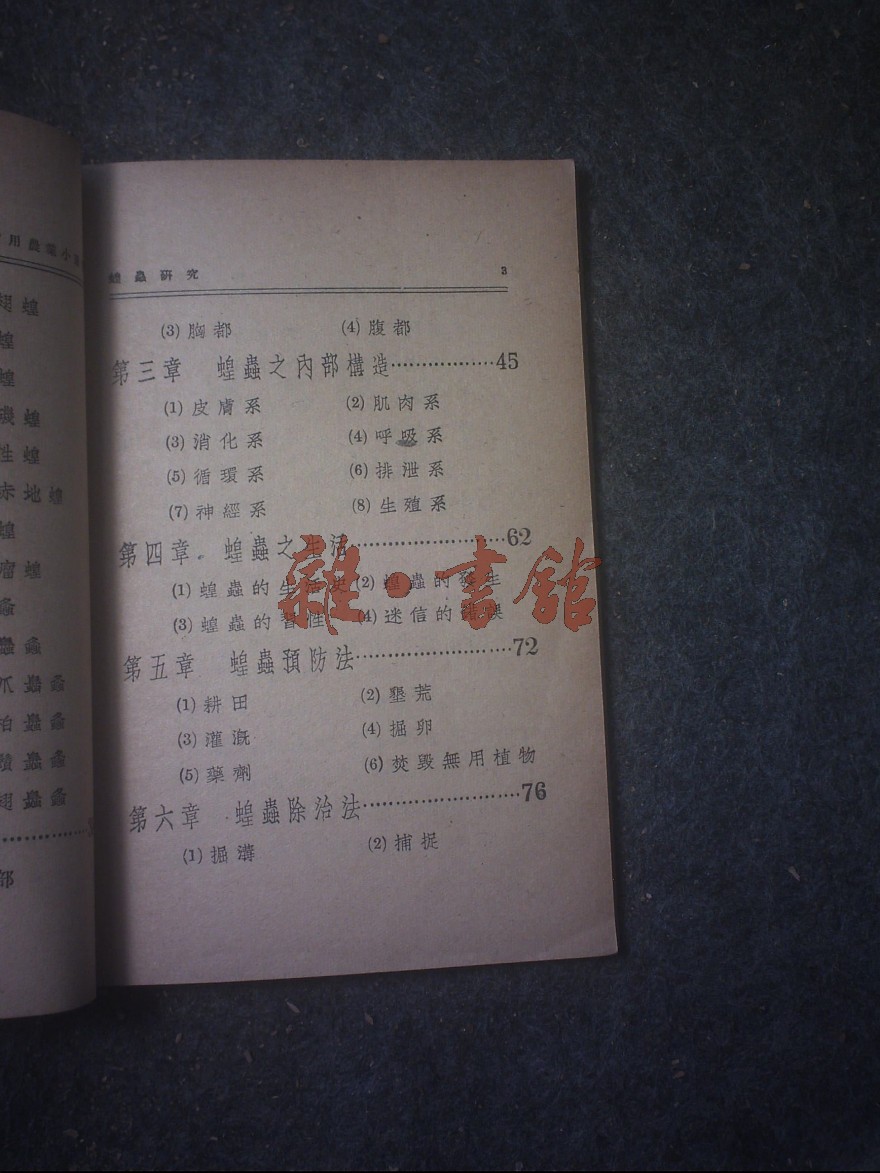 蝗蟲研究 3
(3) 胸都 (4) 腹都
第三章 蝗蟲之內部構造………………45
(1) 皮膚系 (2) 肌肉系
(3) 消化系 (4) 呼吸系
(5) 循環系 (6) 排泄系
(7) 神經系 (8) 生殖系
第四章 蝗蟲之生活………………62
(1) 蝗蟲的生活史 (2) 蝗蟲的發生
(3) 蝗蟲的習性 (4) 迷信的錯誤
第五章 蝗蟲預防法………………72
(1) 耕田 (2) 墾荒
(3) 灌漑 (4) 掘卵
(5) 藥劑 (6) 焚毀無用植物
第六章 蝗蟲除治法………………76
(1) 掘溝 (2) 捕捉
雜·書館
用農業小
蝗
蝗
蝗
蝗
性蝗
赤地蝗
蝗
蝗
螽
螽
爪蟲螽
蟲螽
蟲螽
翅蟲螽
部